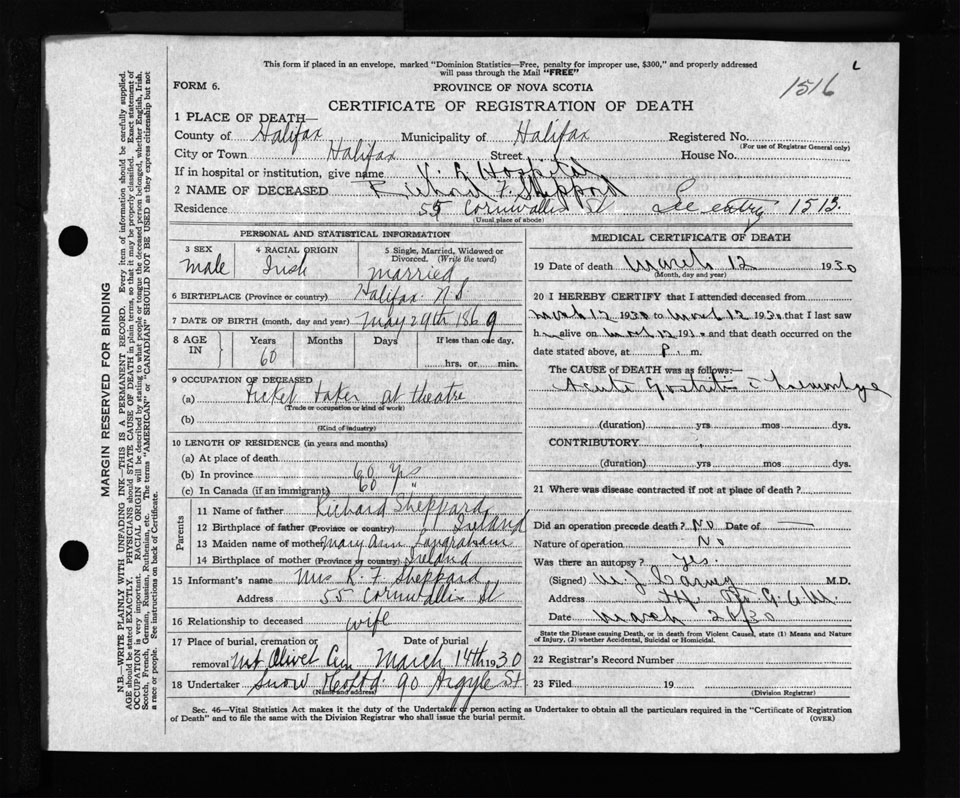 This form if placed in an envelope, marked "Dominion Statistics—Free, penalty for improper use, $300," and properly addressed
will pass through the Mail "FREE"
1516
FORM 6.
PROVINCE OF NOVA SCOTIA
CERTIFICATE OF REGISTRATION OF DEATH
1 PLACE OF DEATH—
County of Halifax Municipality of Halifax Registered No.
(For use of Registrar General only)
City or Town Halifax Street House No.
If in hospital or institution, give name V. G Hospital
2 NAME OF DECEASED Richard F. Sheppard
Residence 55 Cornwallis St See entry 1513.
(Usual place of abode)
PERSONAL AND STATISTICAL INFORMATION
3 SEX male
4 RACIAL ORIGIN Irish
5 Single, Married, Widowed or Divorced. (Write the word) married
6 BIRTHPLACE (Province or country) Halifax N.S.
7 DATE OF BIRTH (month, day and year) May 29th 1869
8 AGE IN Years 60 Months Days If less than one day, hrs. or min.
9 OCCUPATION OF DECEASED
(a) Ticket taker at theatre
(Trade or occupation or kind of work)
(b)
(Kind of industry)
10 LENGTH OF RESIDENCE (in years and months)
(a) At place of death
(b) In province 60 yrs
(c) In Canada (if an immigrant) 60 "
Parents
11 Name of father Richard Sheppard
12 Birthplace of father (Province or country) Ireland
13 Maiden name of mother Mary Ann
14 Birthplace of mother (Province or country) Ireland
15 Informant's name Mrs R. F. Sheppard
Address 55 Cornwallis St
16 Relationship to deceased wife
17 Place of burial, cremation or removal Mt Olivet Cem Date of burial March 14th 1930
18 Undertaker Snow Co Ltd. 90 Argyle St.
(Name and address)
MEDICAL CERTIFICATE OF DEATH
19 Date of death March 12 1930
(Month, day and year)
20 I HEREBY CERTIFY that I attended deceased from
March 12 1930 to March 12 1930 that I last saw
h alive on March 12 1930 and that death occurred on
date stated above, at P. m.
The CAUSE of DEATH was as follows:—
Acute Gastritis c haemorrhage
(duration) yrs mos dys.
CONTRIBUTORY
(duration) yrs mos dys.
21 Where was disease contracted if not at place of death?
Did an operation precede death? No Date of —
Nature of operation No
Was there an autopsy? Yes.
(Signed) M.D.
Address
Date March 26/30
State the Disease causing Death, or in death from Violent Causes, state (1) Means and Nature
of Injury, (2) whether Accidental, Suicidal or Homicidal.
22 Registrar's Record Number
23 Filed 19
(Division Registrar)
Sec. 46—Vital Statistics Act makes it the duty of the Undertaker or person acting as Undertaker to obtain all the particulars required in the "Certificate of Registration
of Death" and to file the same with the Division Registrar who shall issue the burial permit.
(OVER)
MARGIN RESERVED FOR BINDING
N.B.—WRITE PLAINLY WITH UNFADING INK—THIS IS A PERMANENT RECORD. Every item of information should be carefully supplied.
AGE should be stated EXACTLY. PHYSICIANS should STATE CAUSE OF DEATH in plain terms, so that it may be properly classified. Exact statement of
OCCUPATION is very important. RACIAL ORIGIN will be described by stating to what people or tongue the deceased person belonged, whether English, Irish,
Scotch, French, German, Russian, Ruthenian, etc. The terms "AMERICAN" or "CANADIAN" SHOULD NOT BE USED as they express citizenship but not
a race or people. See instructions on back of Certificate.